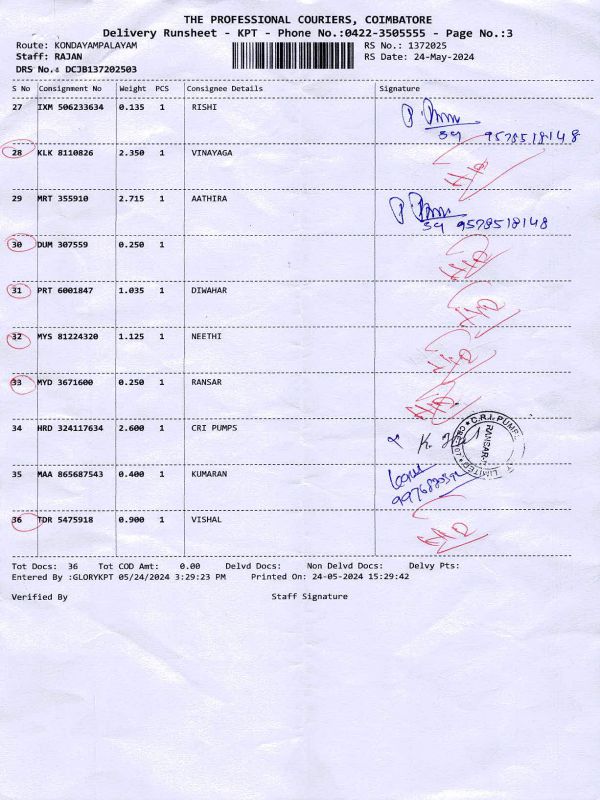 THE PROFESSIONAL COURIERS, COIMBATORE
Delivery Runsheet - KPT - Phone No.:0422-3505555 - Page No.:3
Route: KONDAYAMPALAYAM RS No.: 1372025
Staff: RAJAN RS Date: 24-May-2024
DRS No.: DCJB137202503
S No Consignment No Weight PCS Consignee Details Signature
27 IXM 506233634 0.135 1 RISHI
9578518148
28 KLK 8110826 2.350 1 VINAYAGA
29 MRT 355910 2.715 1 AATHIRA
9578518148
30 DUM 307559 0.250 1
31 PRT 6001847 1.035 1 DIWAHAR
32 MYS 81224320 1.125 1 NEETHI
33 MYD 3671600 0.250 1 RANSAR
34 HRD 324117634 2.600 1 CRI PUMPS
C.R.I. PUMPS
RANSAR
LIMITED
35 MAA 865687543 0.400 1 KUMARAN
36 TDR 5475918 0.900 1 VISHAL
Tot Docs: 36 Tot COD Amt: 0.00 Delvd Docs: Non Delvd Docs: Delvy Pts:
Entered By :GLORYKPT 05/24/2024 3:29:23 PM Printed On: 24-05-2024 15:29:42
Verified By Staff Signature